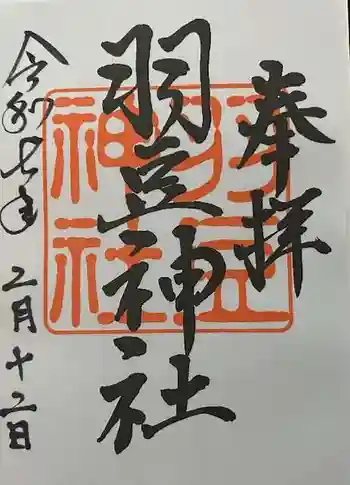 奉拝
羽豆神社
令和七年二月十二日
羽豆
神社